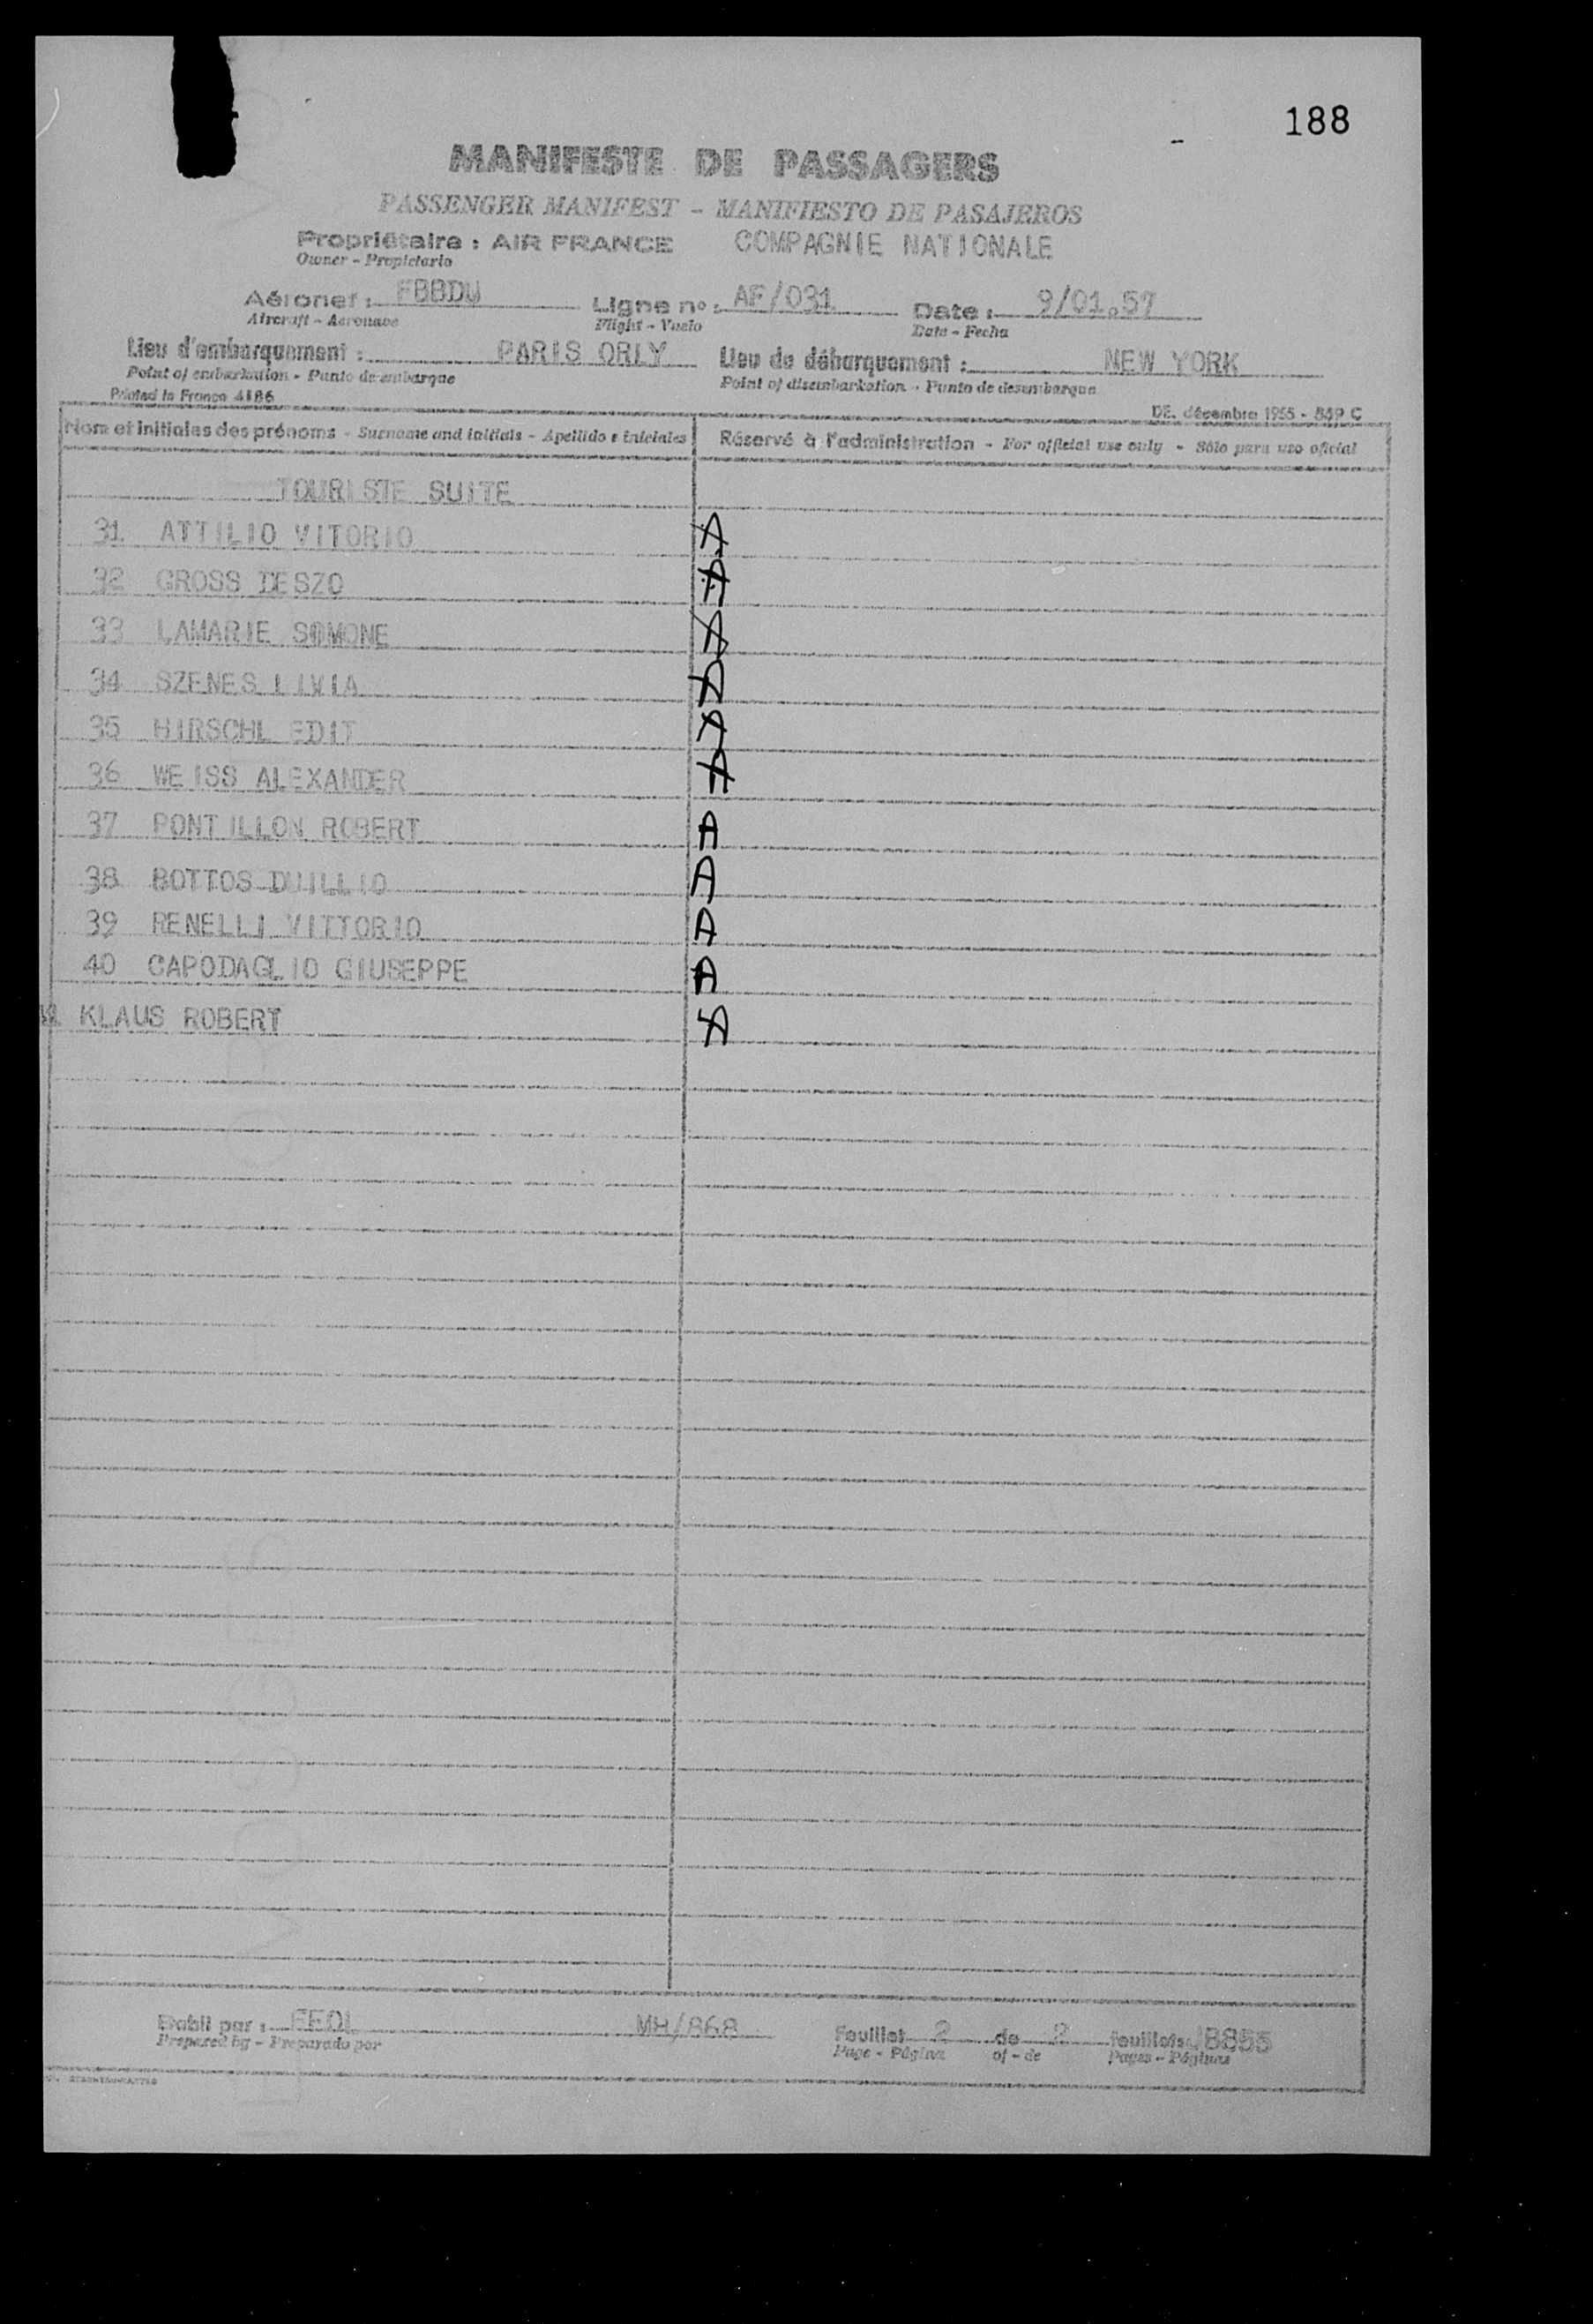 188
MANIFESTE DE PASSAGERS
PASSENGER MANIFEST - MANIFIESTO DE PASAJEROS
Propriétaire : AIR FRANCE COMPAGNIE NATIONALE
Owner - Propietario
Aéronef : FBBDU Ligne nº : AF/031 Date : 9/01.57
Aircraft - Aeronave Flight - Vuelo Date - Fecha
Lieu d'embarquement : PARIS ORLY Lieu de débarquement : NEW YORK
Point of embarkation - Punto de embarque Point of disembarkation - Punto de desembarque
Printed in France 4186 DE. décembre 1955 - 859 C
Nom et initiales des prénoms - Surname and initials - Apellido e iniciales Réservé à l'administration - For official use only - Sólo para uso oficial
TOURISTE SUITE
31 ATTILIO VITORIO A
32 GROSS DESZO A
33 LAMARIE SOMONE A
34 SZENES LIVIA A
35 HIRSCHL EDIT A
36 WEISS ALEXANDER A
37 PONTILLON ROBERT A
38 BOTTOS DUILLIO A
39 RENELLI VITTORIO A
40 CAPODAGLIO GIUSEPPE A
KLAUS ROBERT A
Etabli par : FEOL MH/868 Feuillet 2 de 2 feuillets 8855
Prepared by - Preparado por Page - Página of - de Pages - Páginas